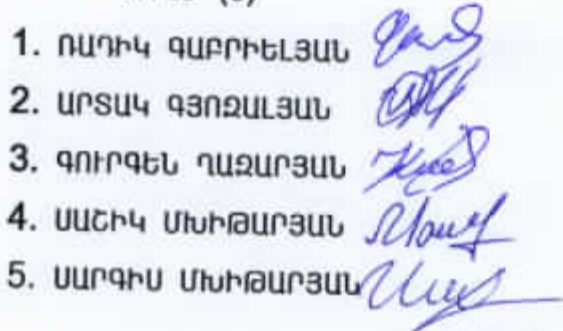 1. ՌԱԴԻԿ ԳԱԲՐԻԵԼՅԱՆ
2. ԱՐՏԱԿ ԳՅՈԶԱԼՅԱՆ
3. ԳՈՒՐԳԵՆ ՂԱԶԱՐՅԱՆ
4. ՍԱՇԻԿ ՄԽԻԹԱՐՅԱՆ
5. ՍԱՐԳԻՍ ՄԽԻԹԱՐՅԱՆ